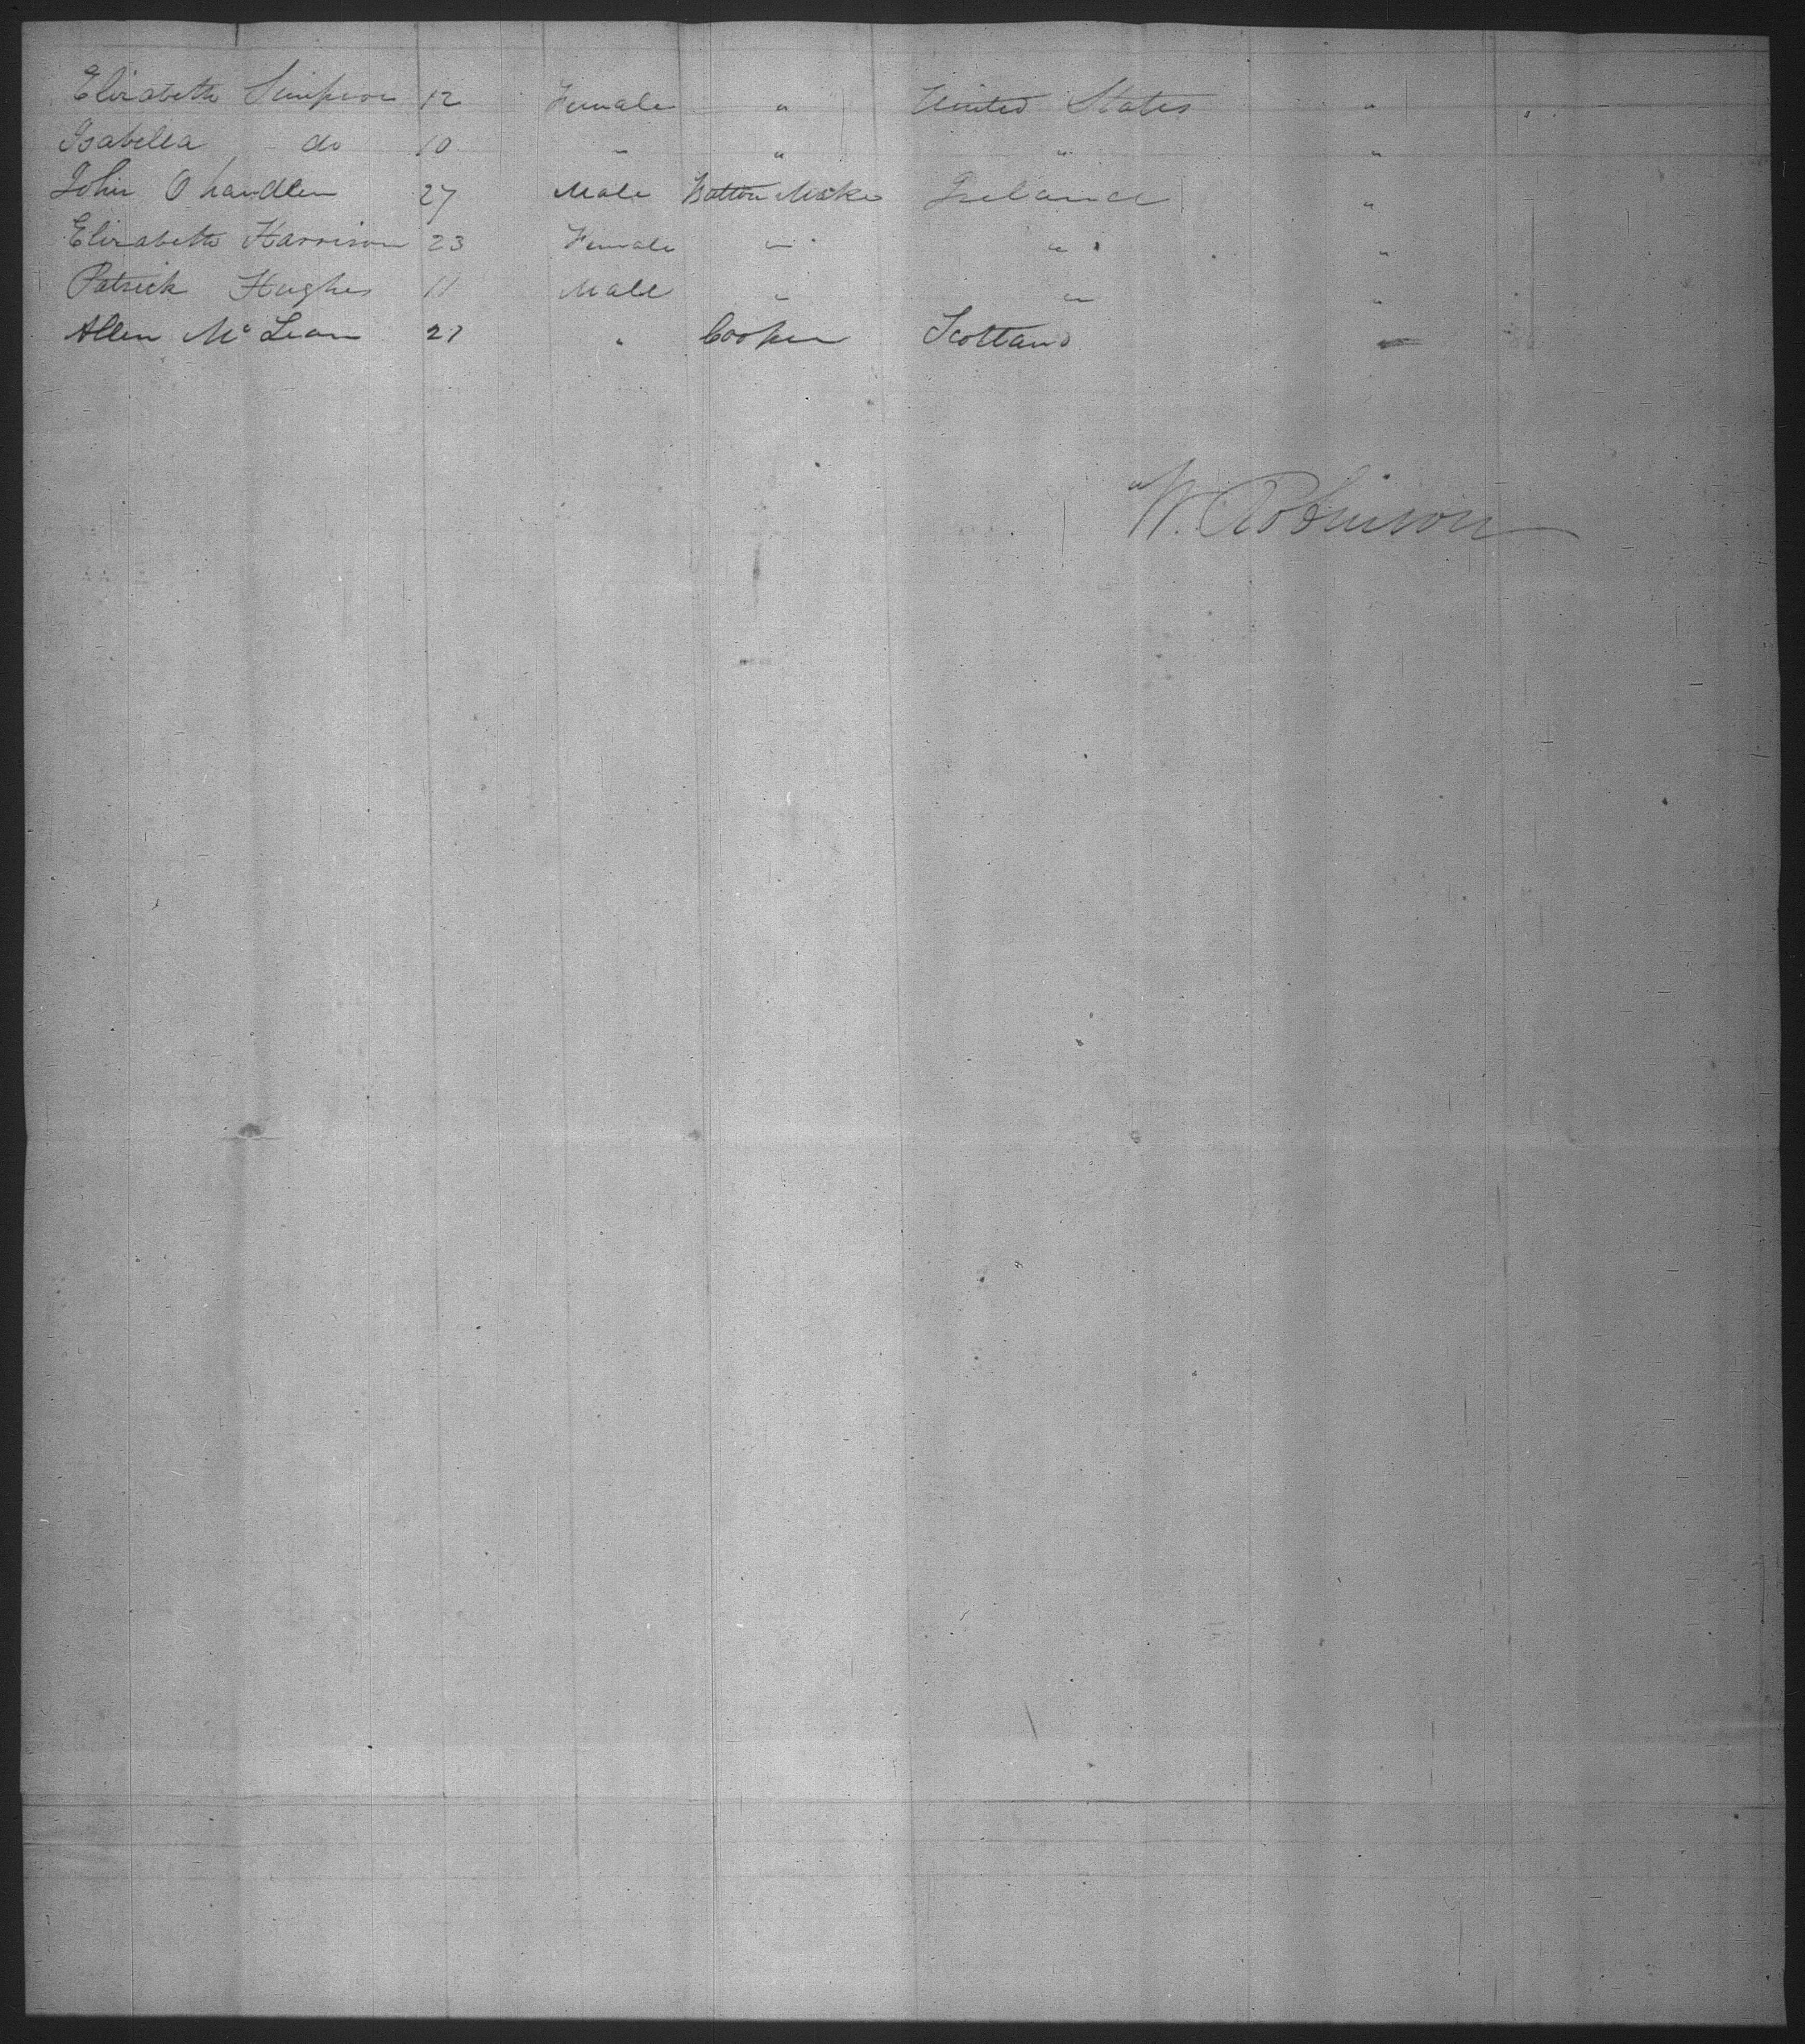 Elizabeth Simpson 12 Female " United States "
Isabella do 10 " " " "
John O handlen 27 Male Button Make Ireland "
Elizabeth Harrison 23 Female " " "
Patrick Hughes 11 Male " " "
Allen Mc Lean 27 " Cooper Scotland "
W. Robinson